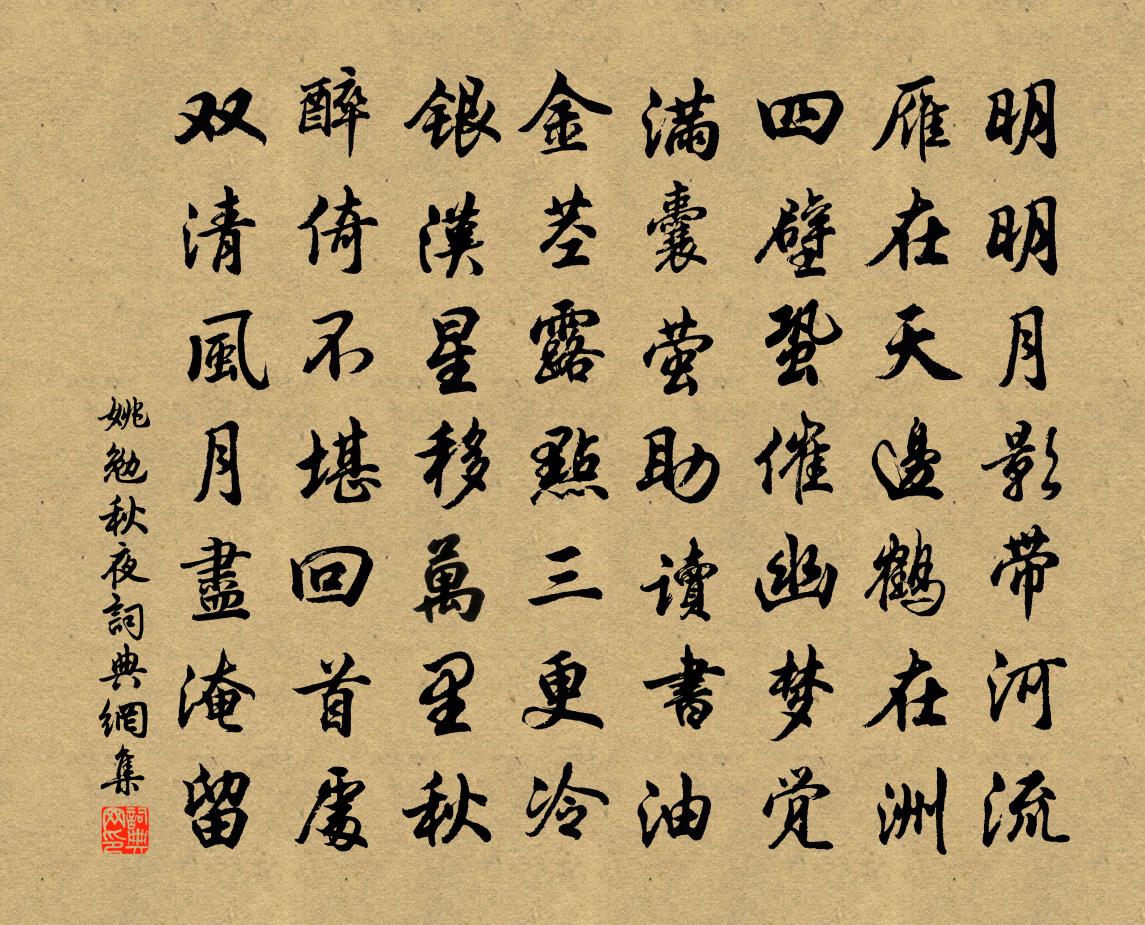 明明月影带河流
雁在天邊鶴在洲
四壁蛩催幽梦觉
满囊萤助读書油
金茎露點三更冷
银漢星移萬里秋
醉倚不堪回首處
双清風月盡淹留
姚勉秋夜詞典網集
詞典网印